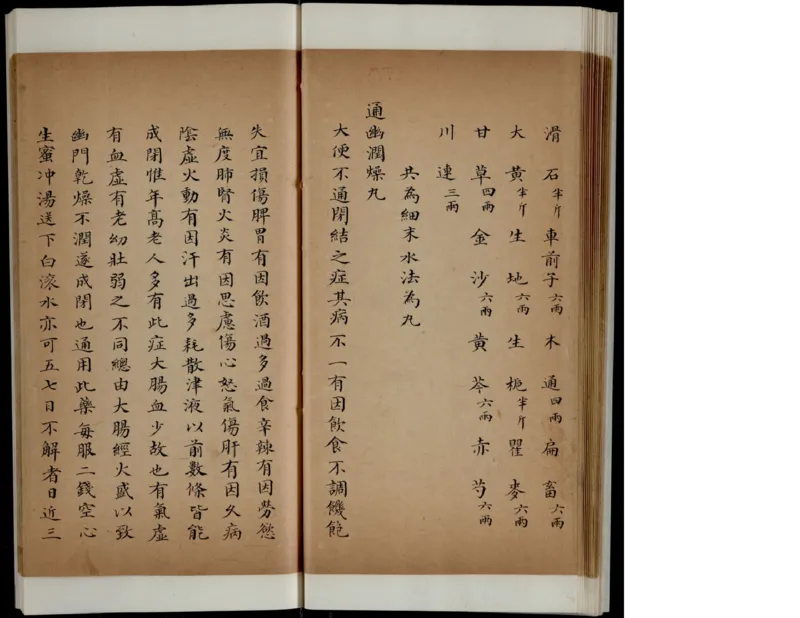 滑石半斤車前子六兩木通四兩扁畜六兩
大黃半斤生地六兩生梔半斤瞿麥六兩
甘草四兩金沙六兩黃芩六兩赤芍六兩
川連三兩
共為細末水法為丸
通幽潤燥丸
大便不通閉結之症其病不一有因飲食不調饑飽
失宜損傷脾胃有因飲酒過多過食辛辣有因勞慾
無度肺腎火炎有因思慮傷心怒氣傷肝有因久病
陰虛火動有因汗出過多耗散津液以前數條皆能
成閉惟年高老人多有此症大腸血少故也有氣虛
有血虛有老幼壯弱之不同總由大腸經火盛以致
幽門乾燥不潤遂成閉也通用此藥每服二錢空心
生蜜冲湯送下白滚水亦可五七日不解者日近三